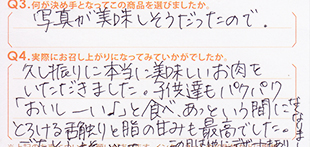 Q3.何が決め手となってこの商品を選びましたか。
写真が美味しそうだったので。
Q4.実際にお召し上がりになってみていかがでしたか。
久し振りに本当に美味しいお肉を
いただきました。子供達もパクパク
「おいしーい♪」と食べ、あっという間に
なくなりま
とろける舌触りと脂の甘みも最高でした。